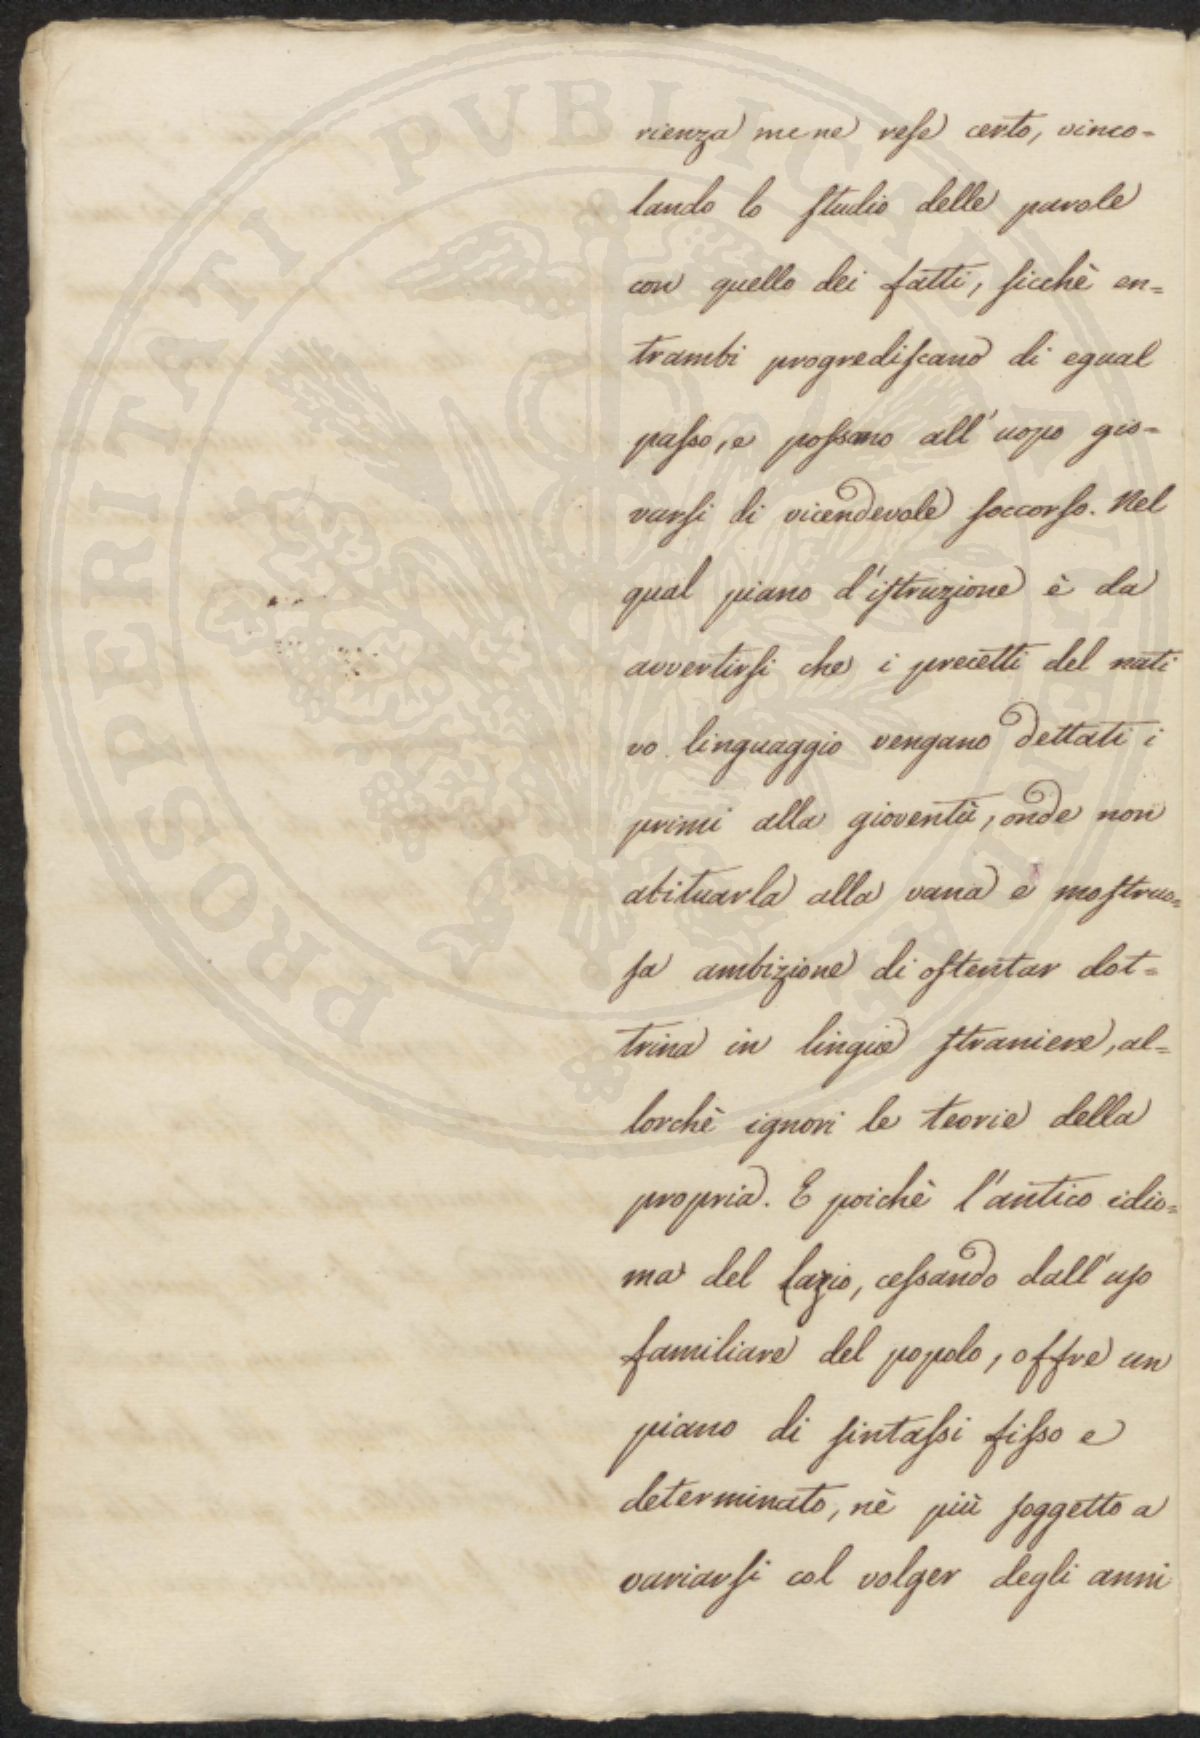 rienza me ne rese certo, vinco=
lando lo studio delle parole
con quello dei fatti, sicchè en=
trambi progrediscano di egual
passo, e possano all'uopo gio=
varsi di vicendevole soccorso. Nel
qual piano d'istruzione è da
avvertirsi che i precetti del nati
vo linguaggio vengano dettati i
primi alla gioventù, onde non
abituarla alla vana e mostruo=
sa ambizione di ostentar dot=
trina in lingue straniere, al=
lorchè ignori le teorie della
propria. E poichè l'antico idio=
ma del Lazio, cessando dall'uso
familiare del popolo, offre un
piano di sintassi fisso e
determinato, nè più soggetto a
variarsi col volger degli anni
PROSPERITATI PVBLICAE AVGENDAE